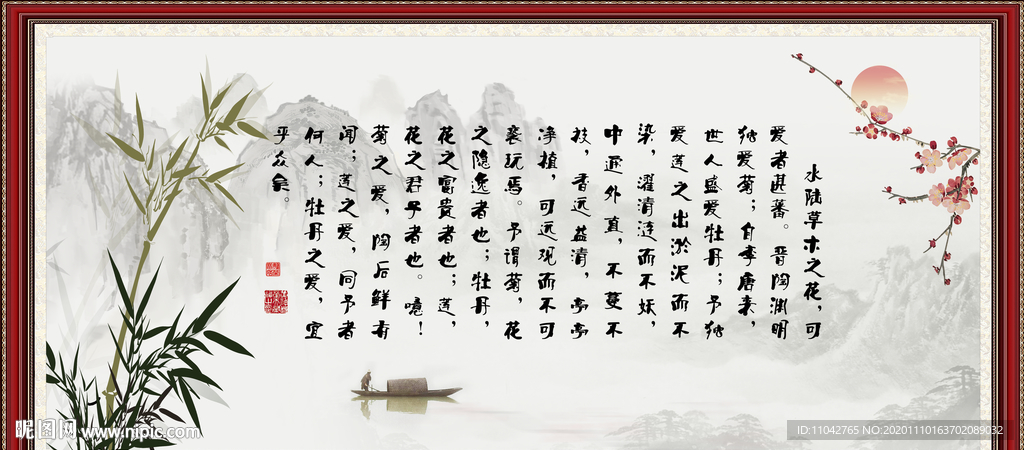 水陆草木之花,可
爱者甚蕃。晋陶渊明
独爱菊;自李唐来,
世人盛爱牡丹;予独
爱莲之出淤泥而不
染,濯清涟而不妖,
中通外直,不蔓不
枝,香远益清,亭亭
净植,可远观而不可
亵玩焉。予谓菊,花
之隐逸者也;牡丹,
花之富貴者也;莲,
花之君子者也。噫!
菊之爱,陶后鲜有
闻;莲之爱,同予者
何人;牡丹之爱,宜
乎众矣。
昵图网 www.nipic.com
ID:11042765 NO:20201110163702089032